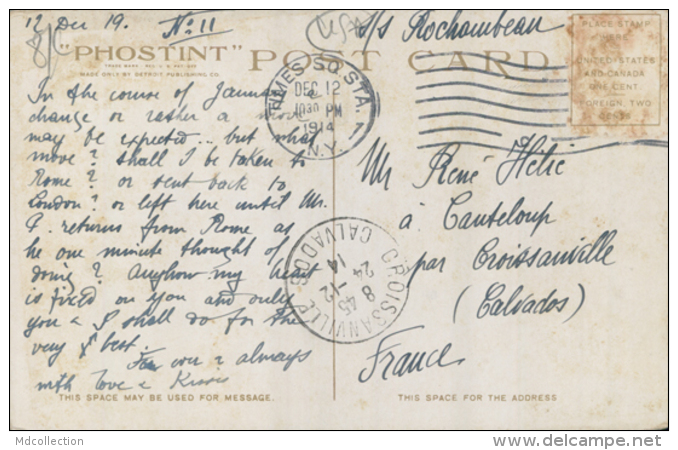 12 Dec 19. No 11
USA
S/S Rochambeau
"PHOSTINT" POST CARD
MADE ONLY BY DETROIT PUBLISHING CO.
PLACE STAMP
HERE
UNITED STATES
AND CANADA
ONE CENT
FOREIGN, TWO
CENTS
TIMES SQ. STA.
DEC 12
1030 PM
1914
N.Y.
1
In the course of January
change or rather a move
may be expected... but what
move? Shall I be taken to
Rome? or sent back to
London? or left here until Mr.
P. returns from Rome as
he one minute thought of
doing? Anyhow my heart
is fixed on you and only
you & I shall do for the
very best.
For ever & always
with love & Kisses
Mr René Hélie
à Canteloup
par Croissanville
(Calvados)
France
CROISSANVILLE
CALVADOS
8 45
24-12
14
THIS SPACE MAY BE USED FOR MESSAGE.
THIS SPACE FOR THE ADDRESS
Mdcollection
delcampe.net